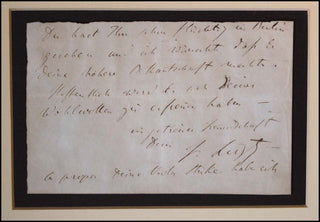 Du hast Ihn schon flüchtig in Berlin
gesehen und ich wünschte daß Er
Deine nähere Bekanntschaft machte.
Hoffentlich wird Er sich Deines
Wohlwollens zu erfreuen haben —
in getreuer Freundschaft
Dein F. Liszt
a propos Deine habe ich